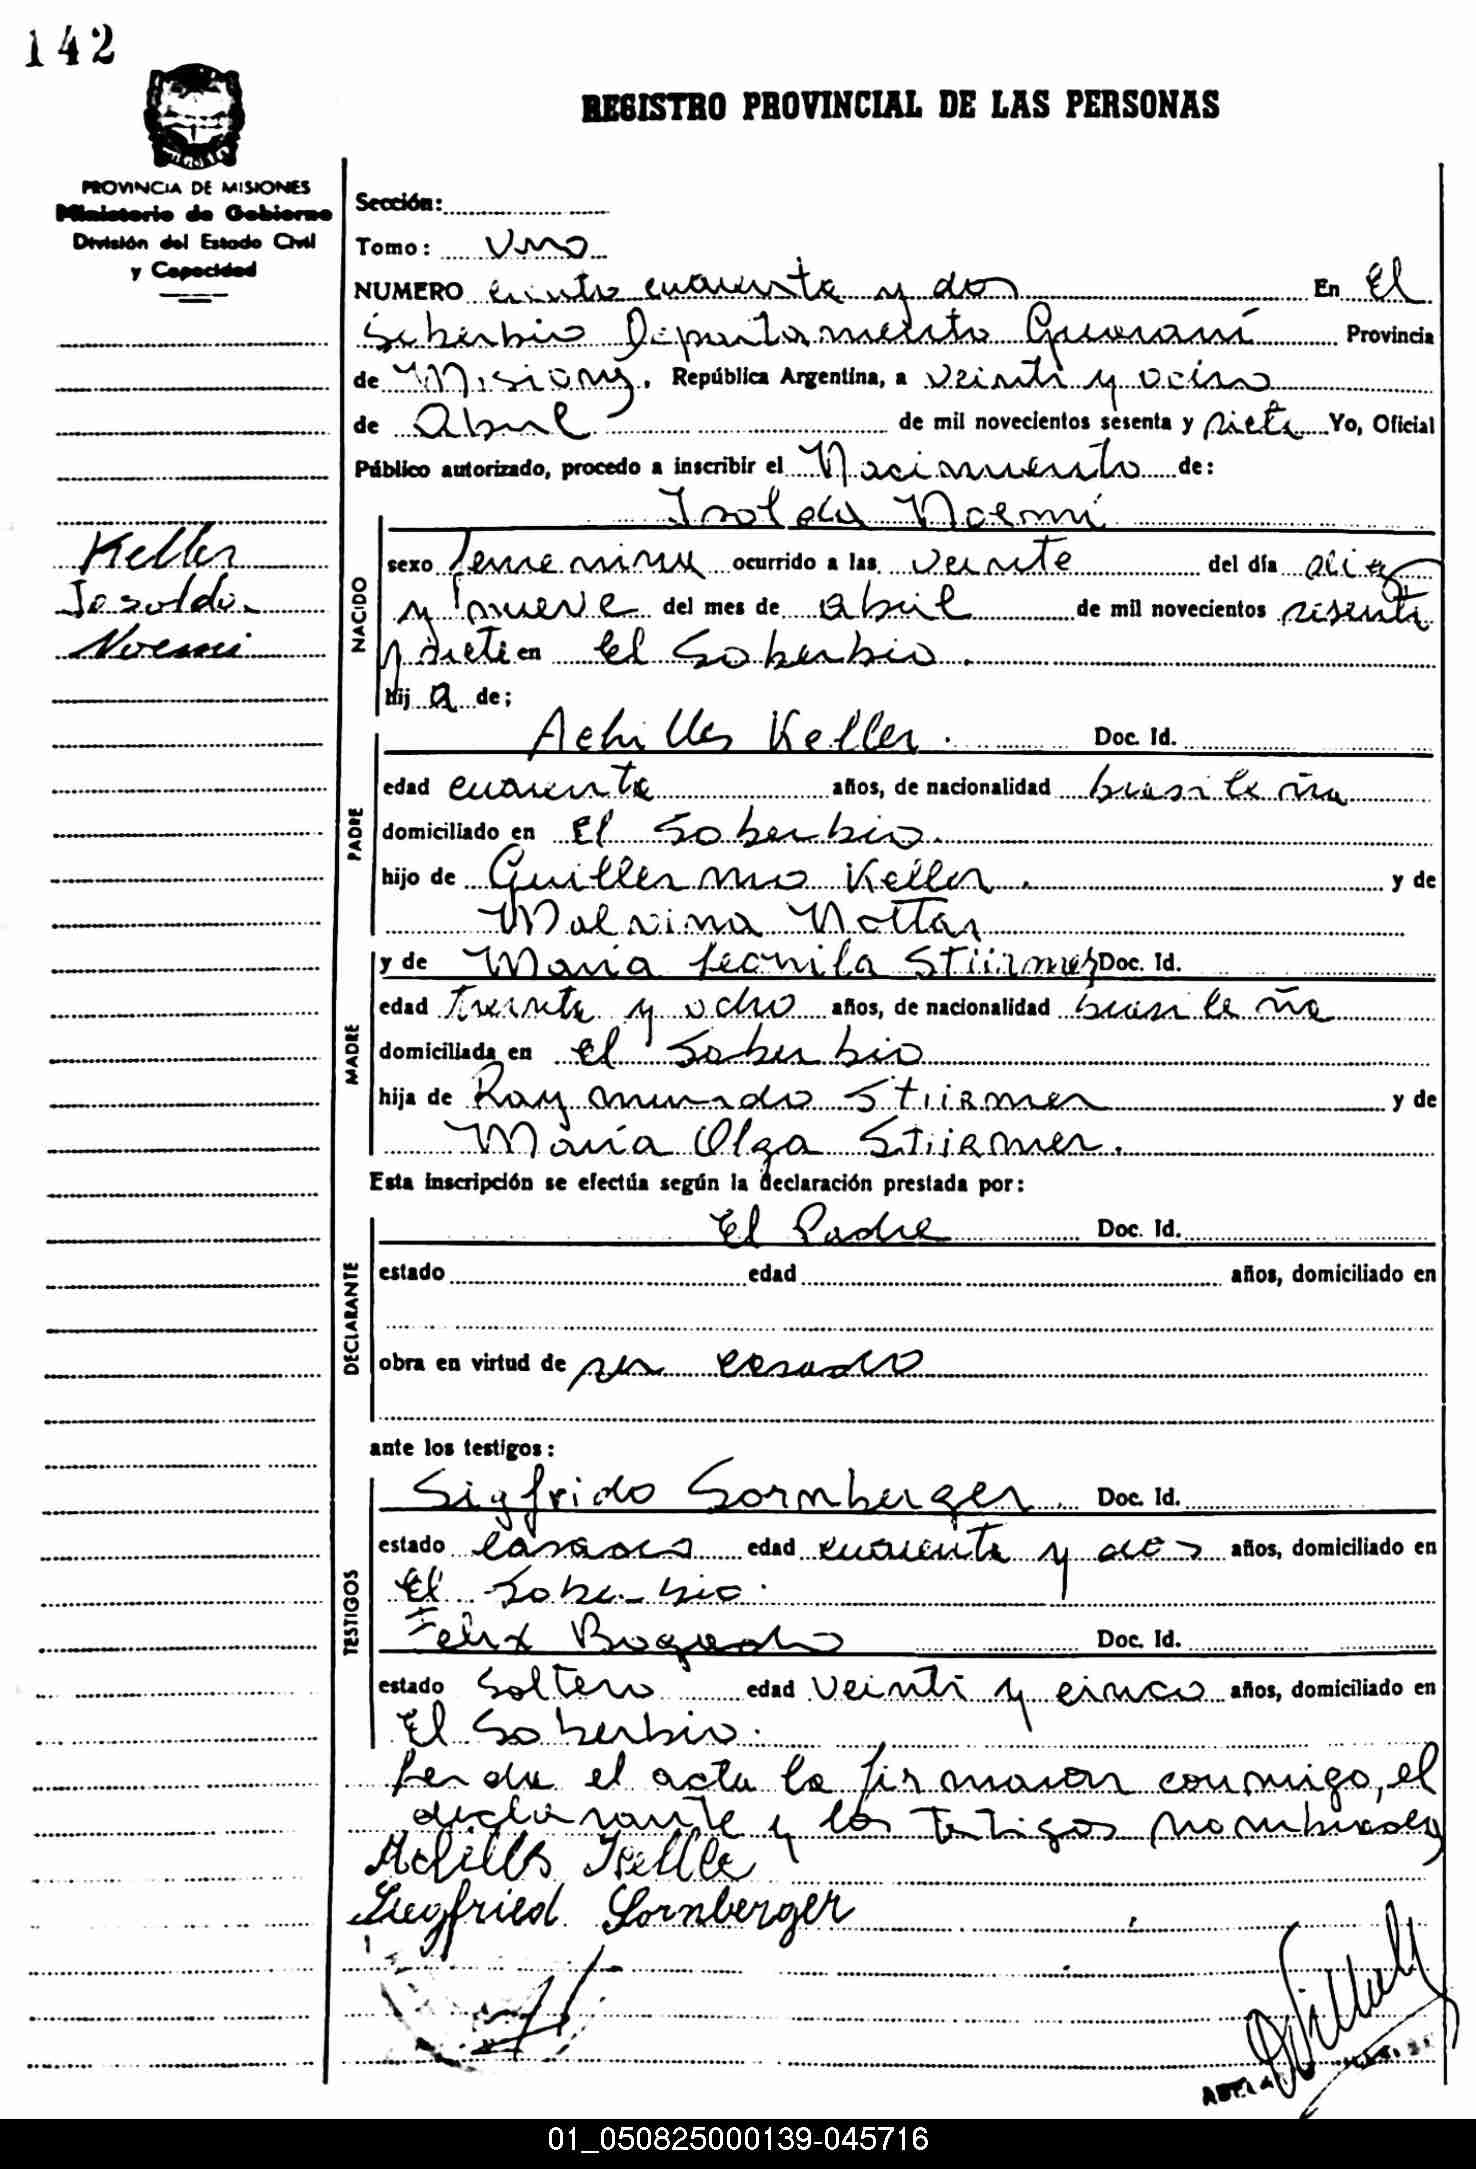 142
REGISTRO PROVINCIAL DE LAS PERSONAS
PROVINCIA DE MISIONES
Ministerio de Gobierno
División del Estado Civil
y Capacidad
Sección:
Tomo: Uno
NUMERO ciento cuarenta y dos En El
Soberbio Departamento Guaraní Provincia
de Misiones, República Argentina, a veinti y ocho
de Abril de mil novecientos sesenta y siete Yo, Oficial
Público autorizado, procedo a inscribir el Nacimiento de:
Isolda Noemí
Keller
Isolda
Noemi
NACIDO
sexo femenino ocurrido a las veinte del día diez
y nueve del mes de abril de mil novecientos sesenta
y siete en El Soberbio.
hija de;
PADRE
Achilles Keller. Doc. Id.
edad cuarenta años, de nacionalidad brasileña
domiciliado en El Soberbio.
hijo de Guillermo Keller. y de
Malvina Nottar
MADRE
y de María Leonila Stiirmer Doc. Id.
edad treinta y ocho años, de nacionalidad brasileña
domiciliada en El Soberbio
hija de Raymundo Stiirmer y de
María Olga Stiirmer.
Esta inscripción se efectúa según la declaración prestada por:
DECLARANTE
El Padre Doc. Id.
estado edad años, domiciliado en
obra en virtud de ser casado
ante los testigos:
TESTIGOS
Sigfrido Sornberger. Doc. Id.
estado casado edad cuarenta y dos años, domiciliado en
El Soberbio.
Felix Bogado Doc. Id.
estado Soltero edad veinti y cinco años, domiciliado en
El Soberbio.
Leida el acta la firmaron conmigo, el
declarante y los testigos nombrados
Achilles Keller
Siegfried Sornberger
01_050825000139-045716